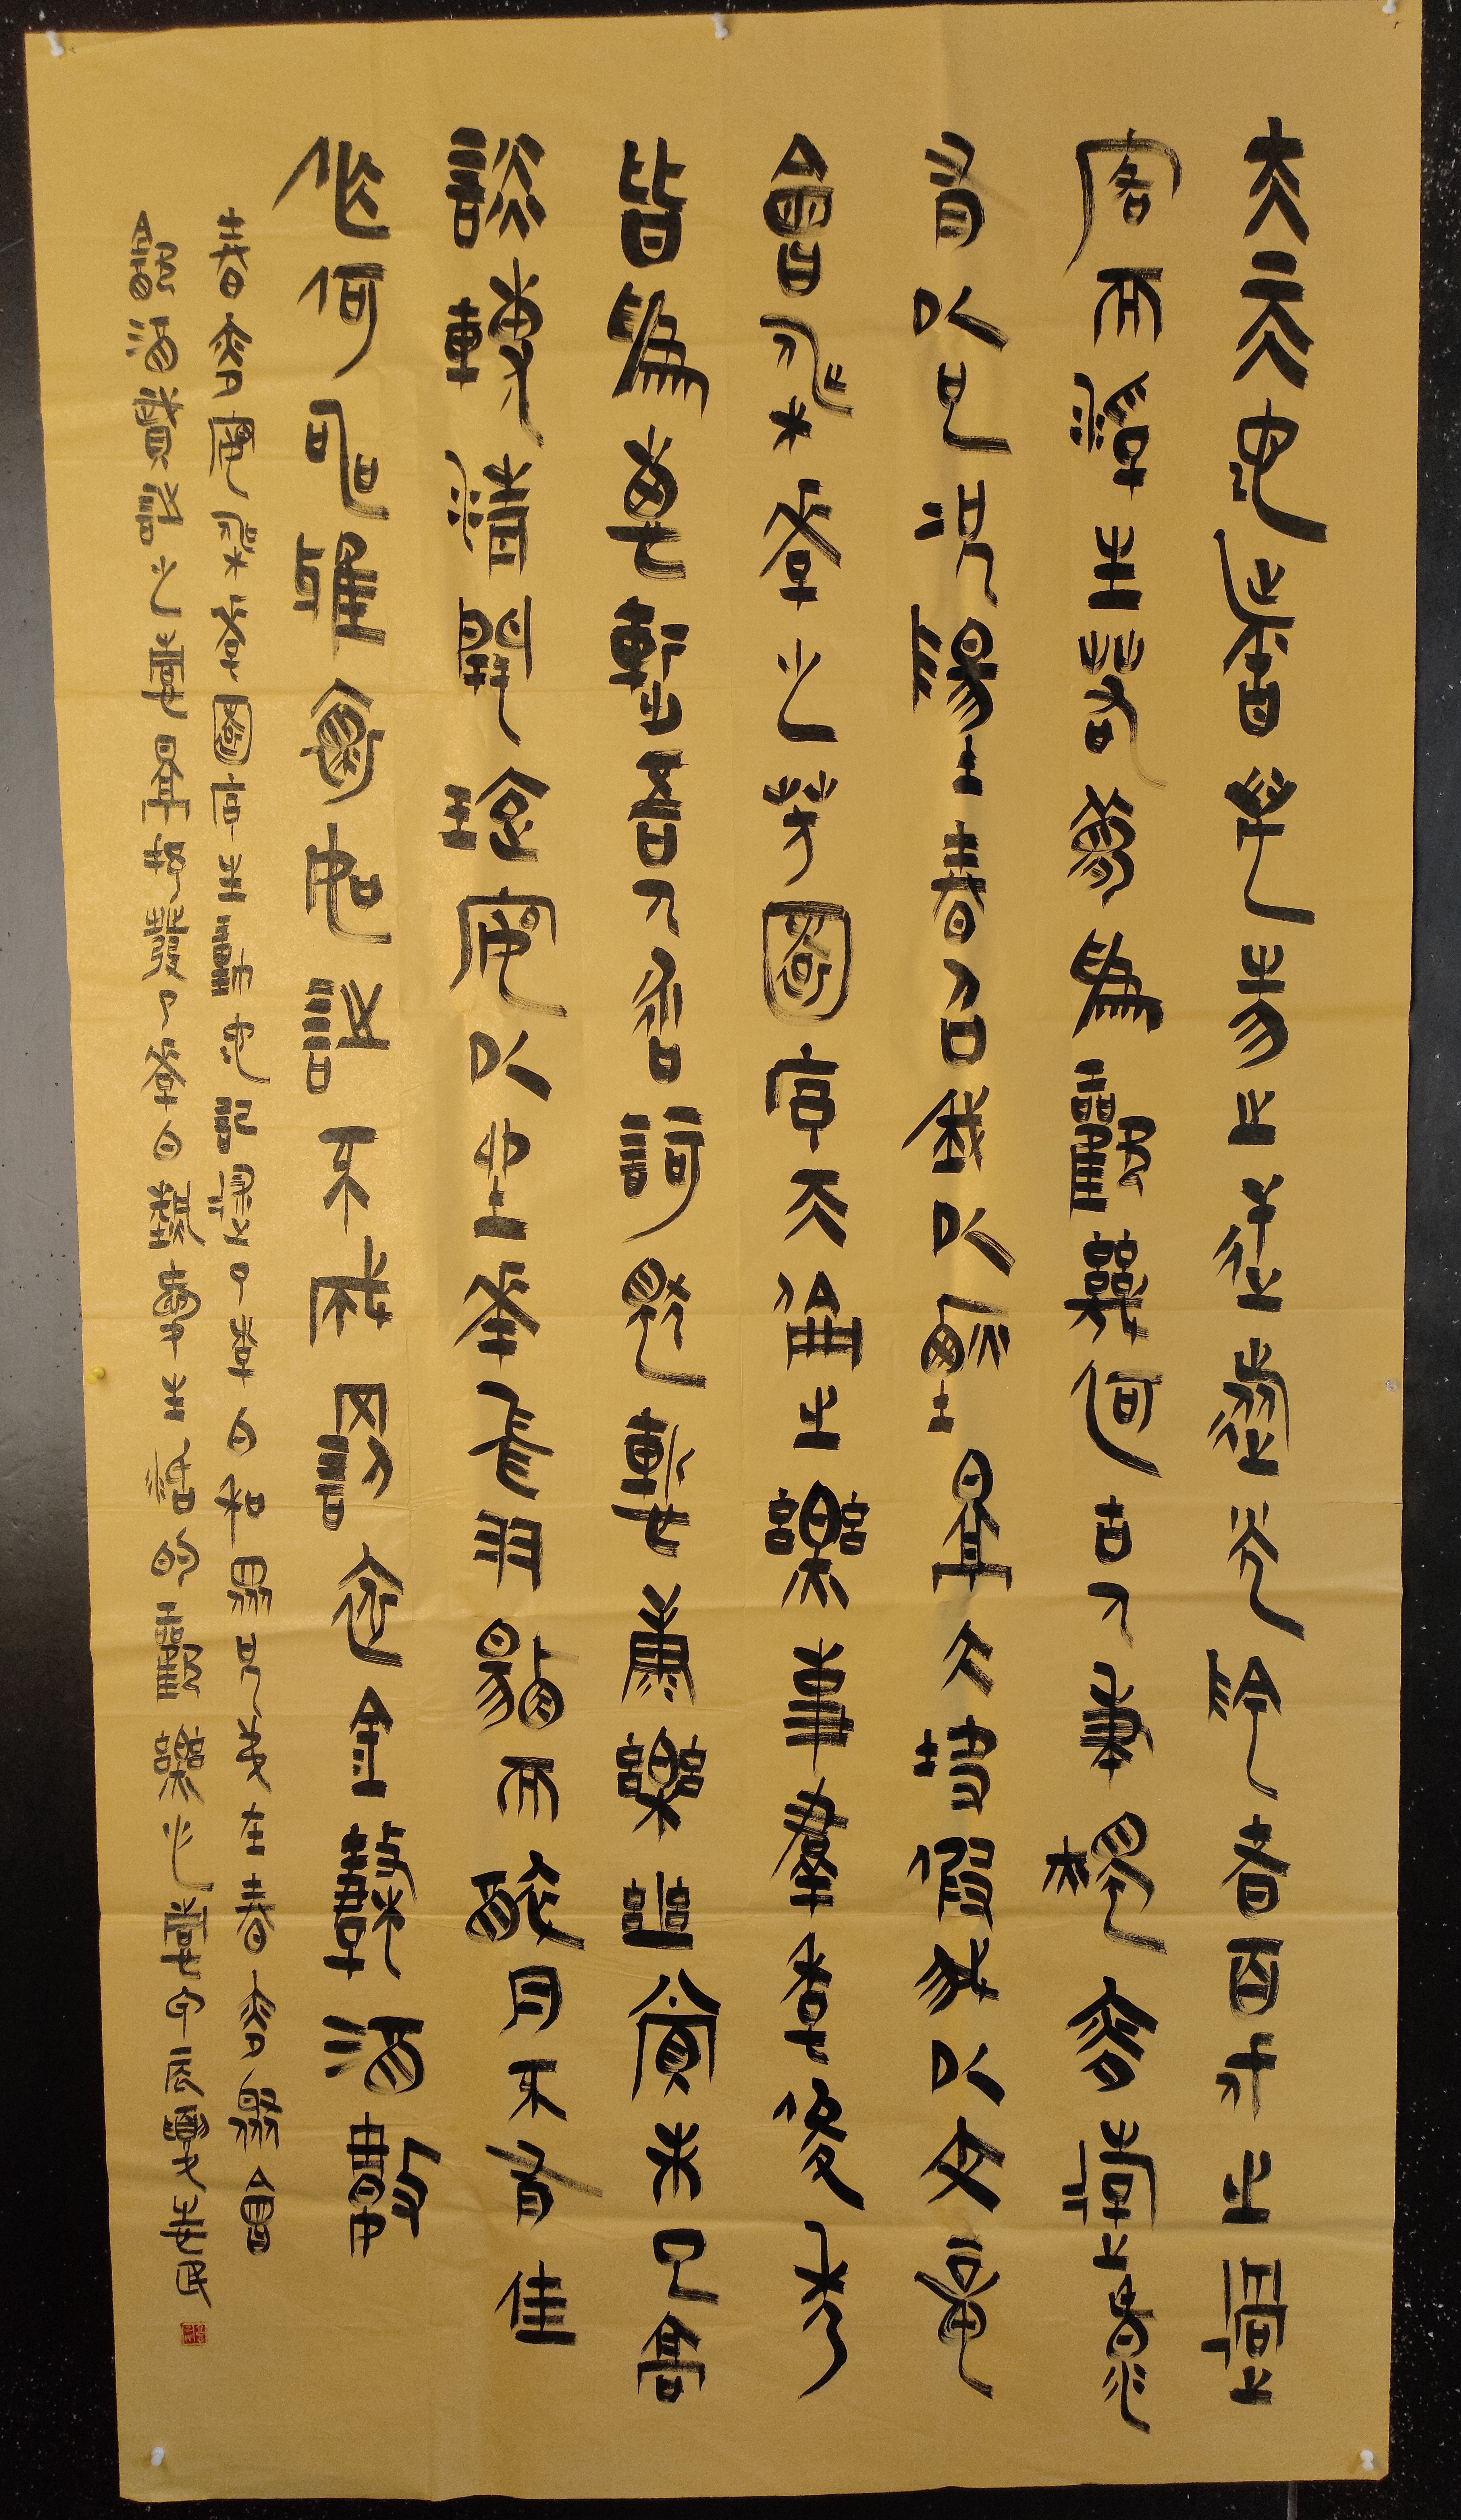 夫天地者萬物之逆旅光陰者百代之過
客而浮生若夢為歡幾何古人秉燭夜遊良
有以也況陽春召我以煙景大塊假我以文章
會桃花之芳園序天倫之樂事群季俊秀
皆為惠連吾人詠歌獨慚康樂幽賞未已高
談轉清開瓊筵以坐花飛羽觴而醉月不有佳
作何伸雅懷如詩不成罰依金谷酒數
春夜宴桃花園序生動地記述了李白和眾兄弟在春夜聚會
飲酒賦詩之情景抒發了李白熱愛生活的歡樂心情甲辰夏